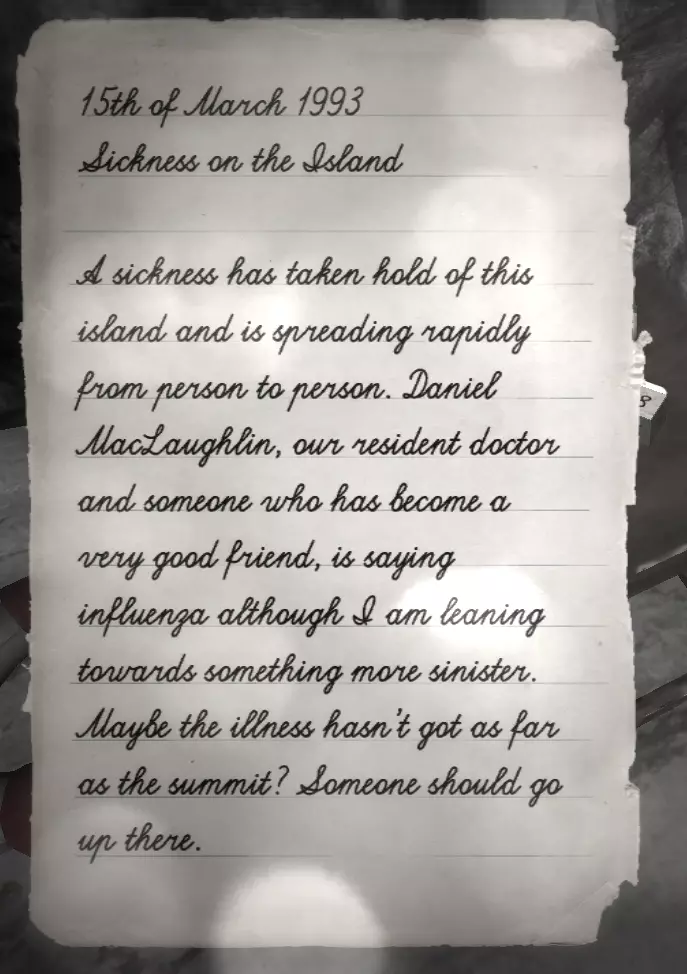 15th of March 1993
Sickness on the Island
A sickness has taken hold of this
island and is spreading rapidly
from person to person. Daniel
MacLaughlin, our resident doctor
and someone who has become a
very good friend, is saying
influenza although I am leaning
towards something more sinister.
Maybe the illness hasn't got as far
as the summit? Someone should go
up there.